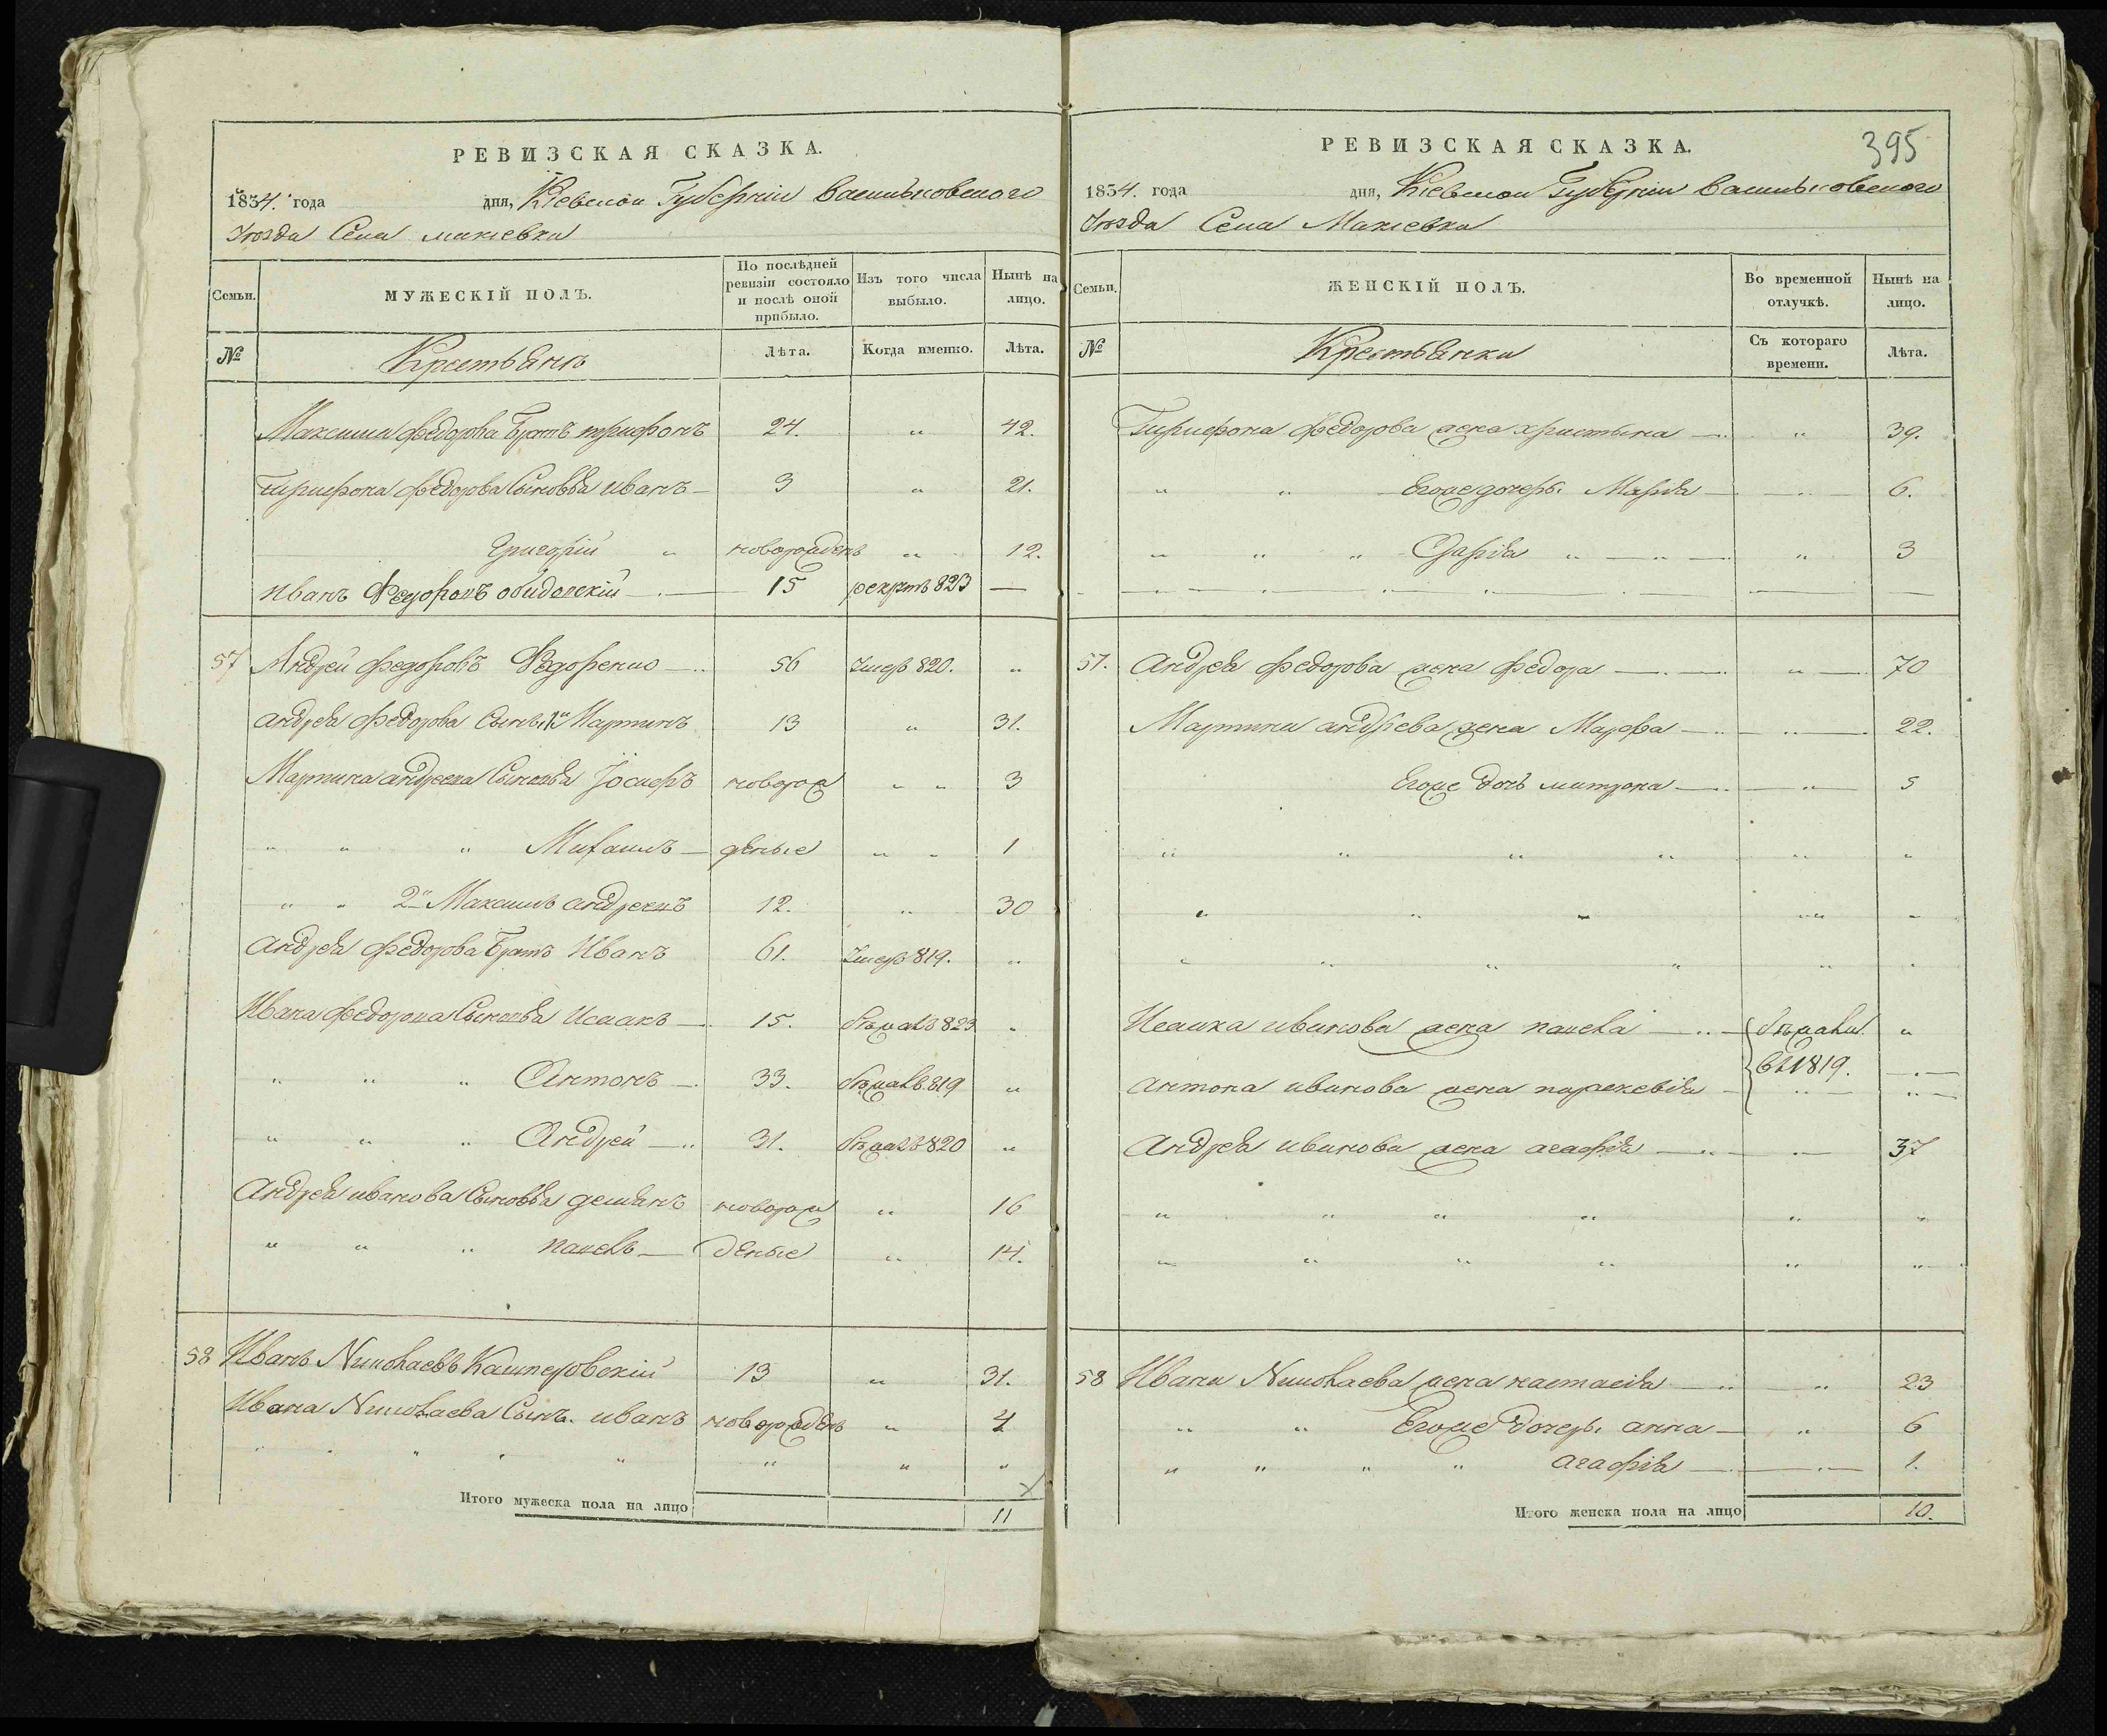 РЕВИЗСКАЯ СКАЗКА.
1834. года дня, Кіевской Губерніи Васильковского
Уѣзда Села макіевки
Семьи. МУЖЕСКІЙ ПОЛЪ. По послѣдней ревизіи состояло и послѣ оной прибыло. Изъ того числа выбыло. Нынѣ на лицо.
№ Крестьянъ Лѣта. Когда именно. Лѣта.
Максима федорова Братъ трифонъ 24. „ 42.
Трифона федорова Сыновья иванъ 3 „ 21.
Григорій „ новорожденъ „ 12.
иванъ 15 рекрутъ 823 —
57 Андрей федоровъ Федоренко 56 Умеръ 820. „
андрея федорова Сынъ 1й Мартинъ 13 „ 31.
Мартина андреева Сыновья Іосифъ новорож „ „ 3
„ „ „ Михаилъ — деные „ „ 1
„ „ 2й Максимъ андреевъ 12. „ 30
андрея федорова Братъ Иванъ 61. Умеръ 819. „
Ивана федорова Сыновья Исаакъ 15. бѣжалъ 823 „
„ „ „ Антонъ 33. бѣжалъ 819 „
„ „ „ Андрей 31. бѣжалъ 820 „
Андрея иванова Сыновья демянъ новорож „ 16
„ „ „ павелъ — деные „ 14.
58 Иванъ Николаевъ Кашперовскій 13 „ 31.
Ивана Николаева Сынъ. иванъ новорожденъ „ 4
„ „ „ „ „ „ „ „
Итого мужеска пола на лицо 11
395
РЕВИЗСКАЯ СКАЗКА.
1834. года дня, Кіевской Губерніи Васильковского
Уѣзда Села Макіевки
Семьи. ЖЕНСКІЙ ПОЛЪ. Во временной отлучкѣ. Нынѣ на лицо.
№ Крестьянки Съ котораго времени. Лѣта.
Трифона федорова жена христина — „ 39.
„ „ Егоже дочерь. Марія — „ 6.
„ „ „ Дарія „ — „ — „ 3
57. андрея федорова жена федора — „ — 70
Мартина андрѣева жена Марфа — „ — 22.
Егоже дочь митрона — „ — 5
„ „ „ „ „ „
„ „ „ „ „
„ „ „ „ „ „
Исаака иванова жена пелагія — бѣжали „
антона иванова жена параскевія — въ 1819. „
Андрея иванова жена агафія — „ — 37
„ „ „ „ „ „
„ „ „ „ „ „
58 Ивана Николаева жена настасія — „ 23
„ „ Егоже дочерь. анна — „ 6
„ „ „ „ агафія — „ — 1.
Итого женска пола на лицо 10.